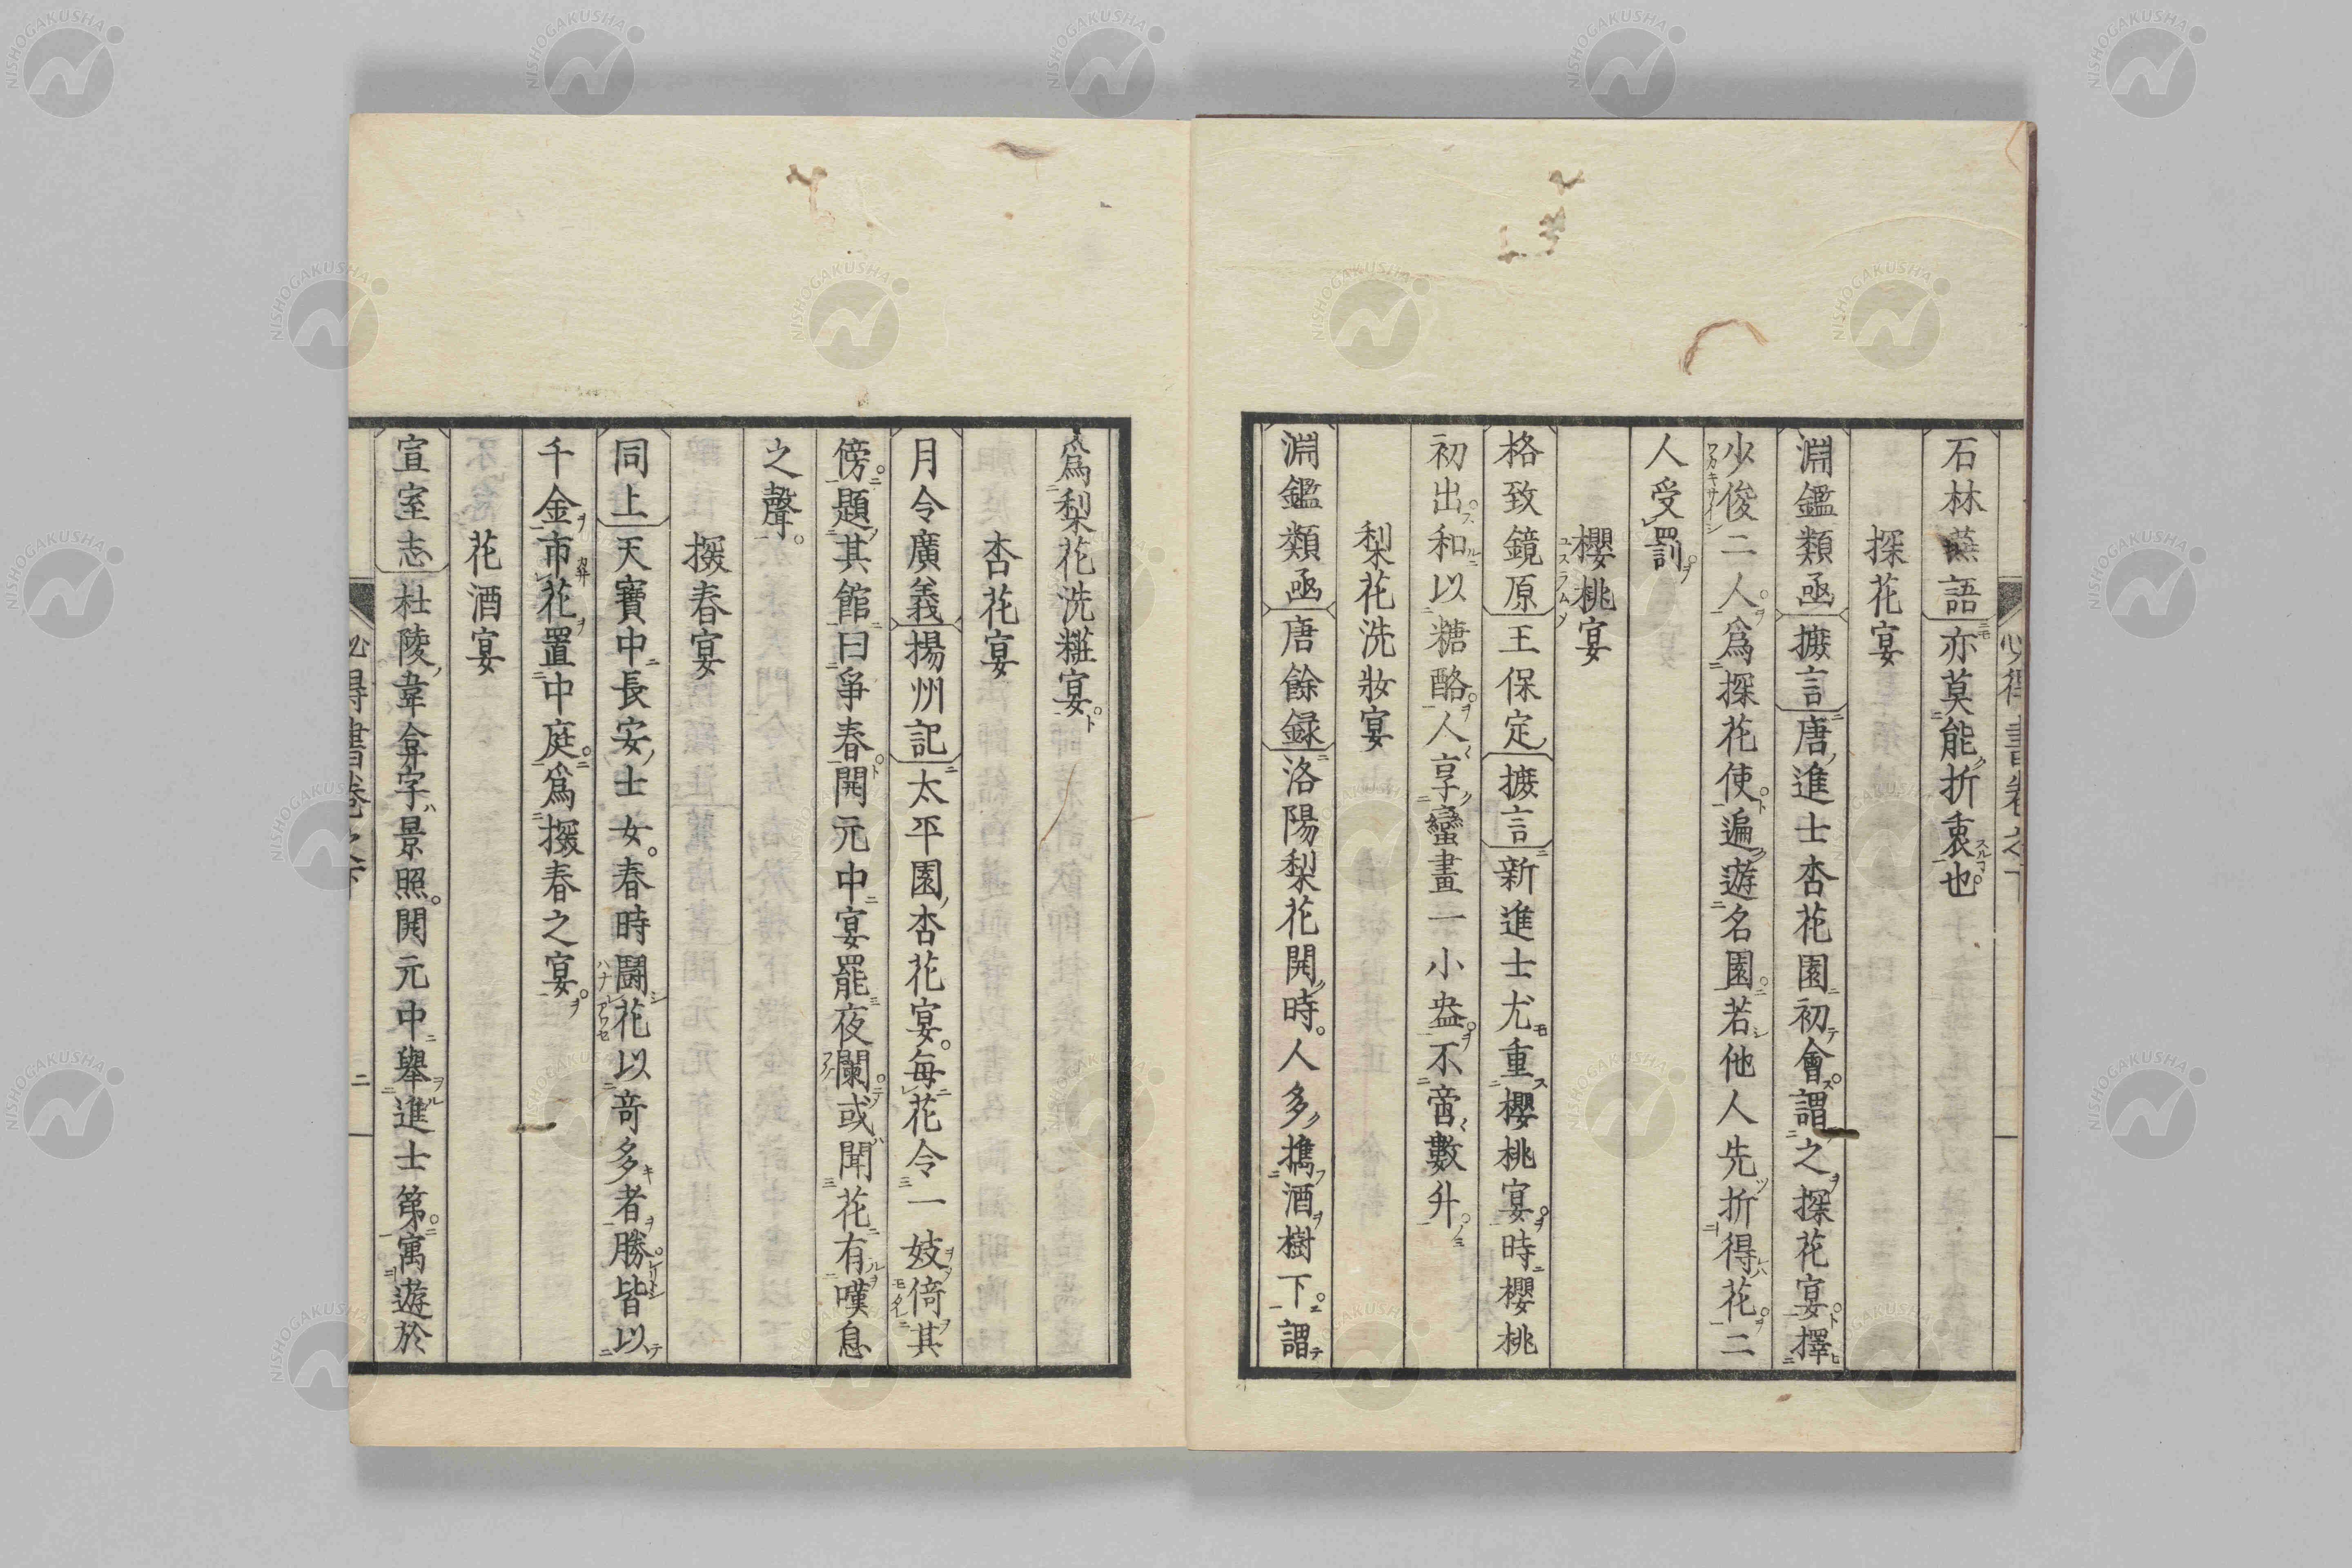 石林燕語亦莫能折衷也
探花宴
淵鑑類函摭言唐進士杏花園初會謂之探花宴擇
少俊二人爲探花使遍遊名園若他人先折得花二
人受罰
櫻桃宴
格致鏡原王保定摭言新進士尤重櫻桃宴時櫻桃
初出和以糖酪人享蠻畫一小盎不啻數升
梨花洗妝宴
淵鑑類函唐餘録洛陽梨花開時人多擕酒樹下謂
爲梨花洗糚宴
杏花宴
月令廣義揚州記太平園杏花宴每花令一妓倚其
傍題其館曰爭春開元中宴罷夜闌或聞花有嘆息
之聲
探春宴
同上天寶中長安士女春時鬪花以竒多者勝皆以
千金市花置中庭爲探春之宴
花酒宴
宣室志杜陵韋弇字景照開元中舉進士第寓遊於
必得書卷之下
二
NISHOGAKUSHA